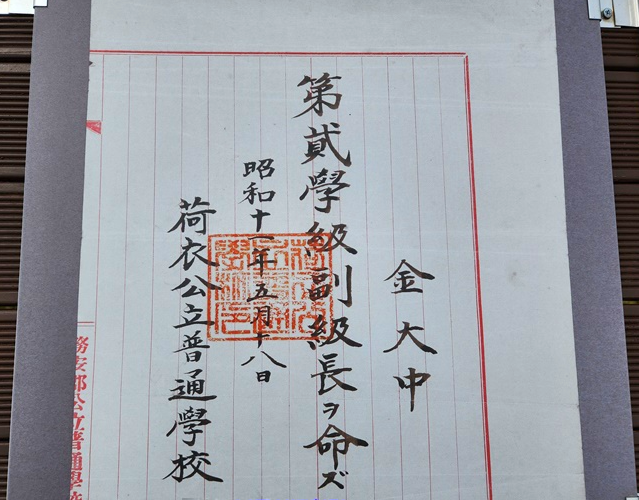 金大中
第貳學級副級長ヲ命ズ
昭和十一年五月十八日
荷衣公立普通學校
務安郡公立普通學校